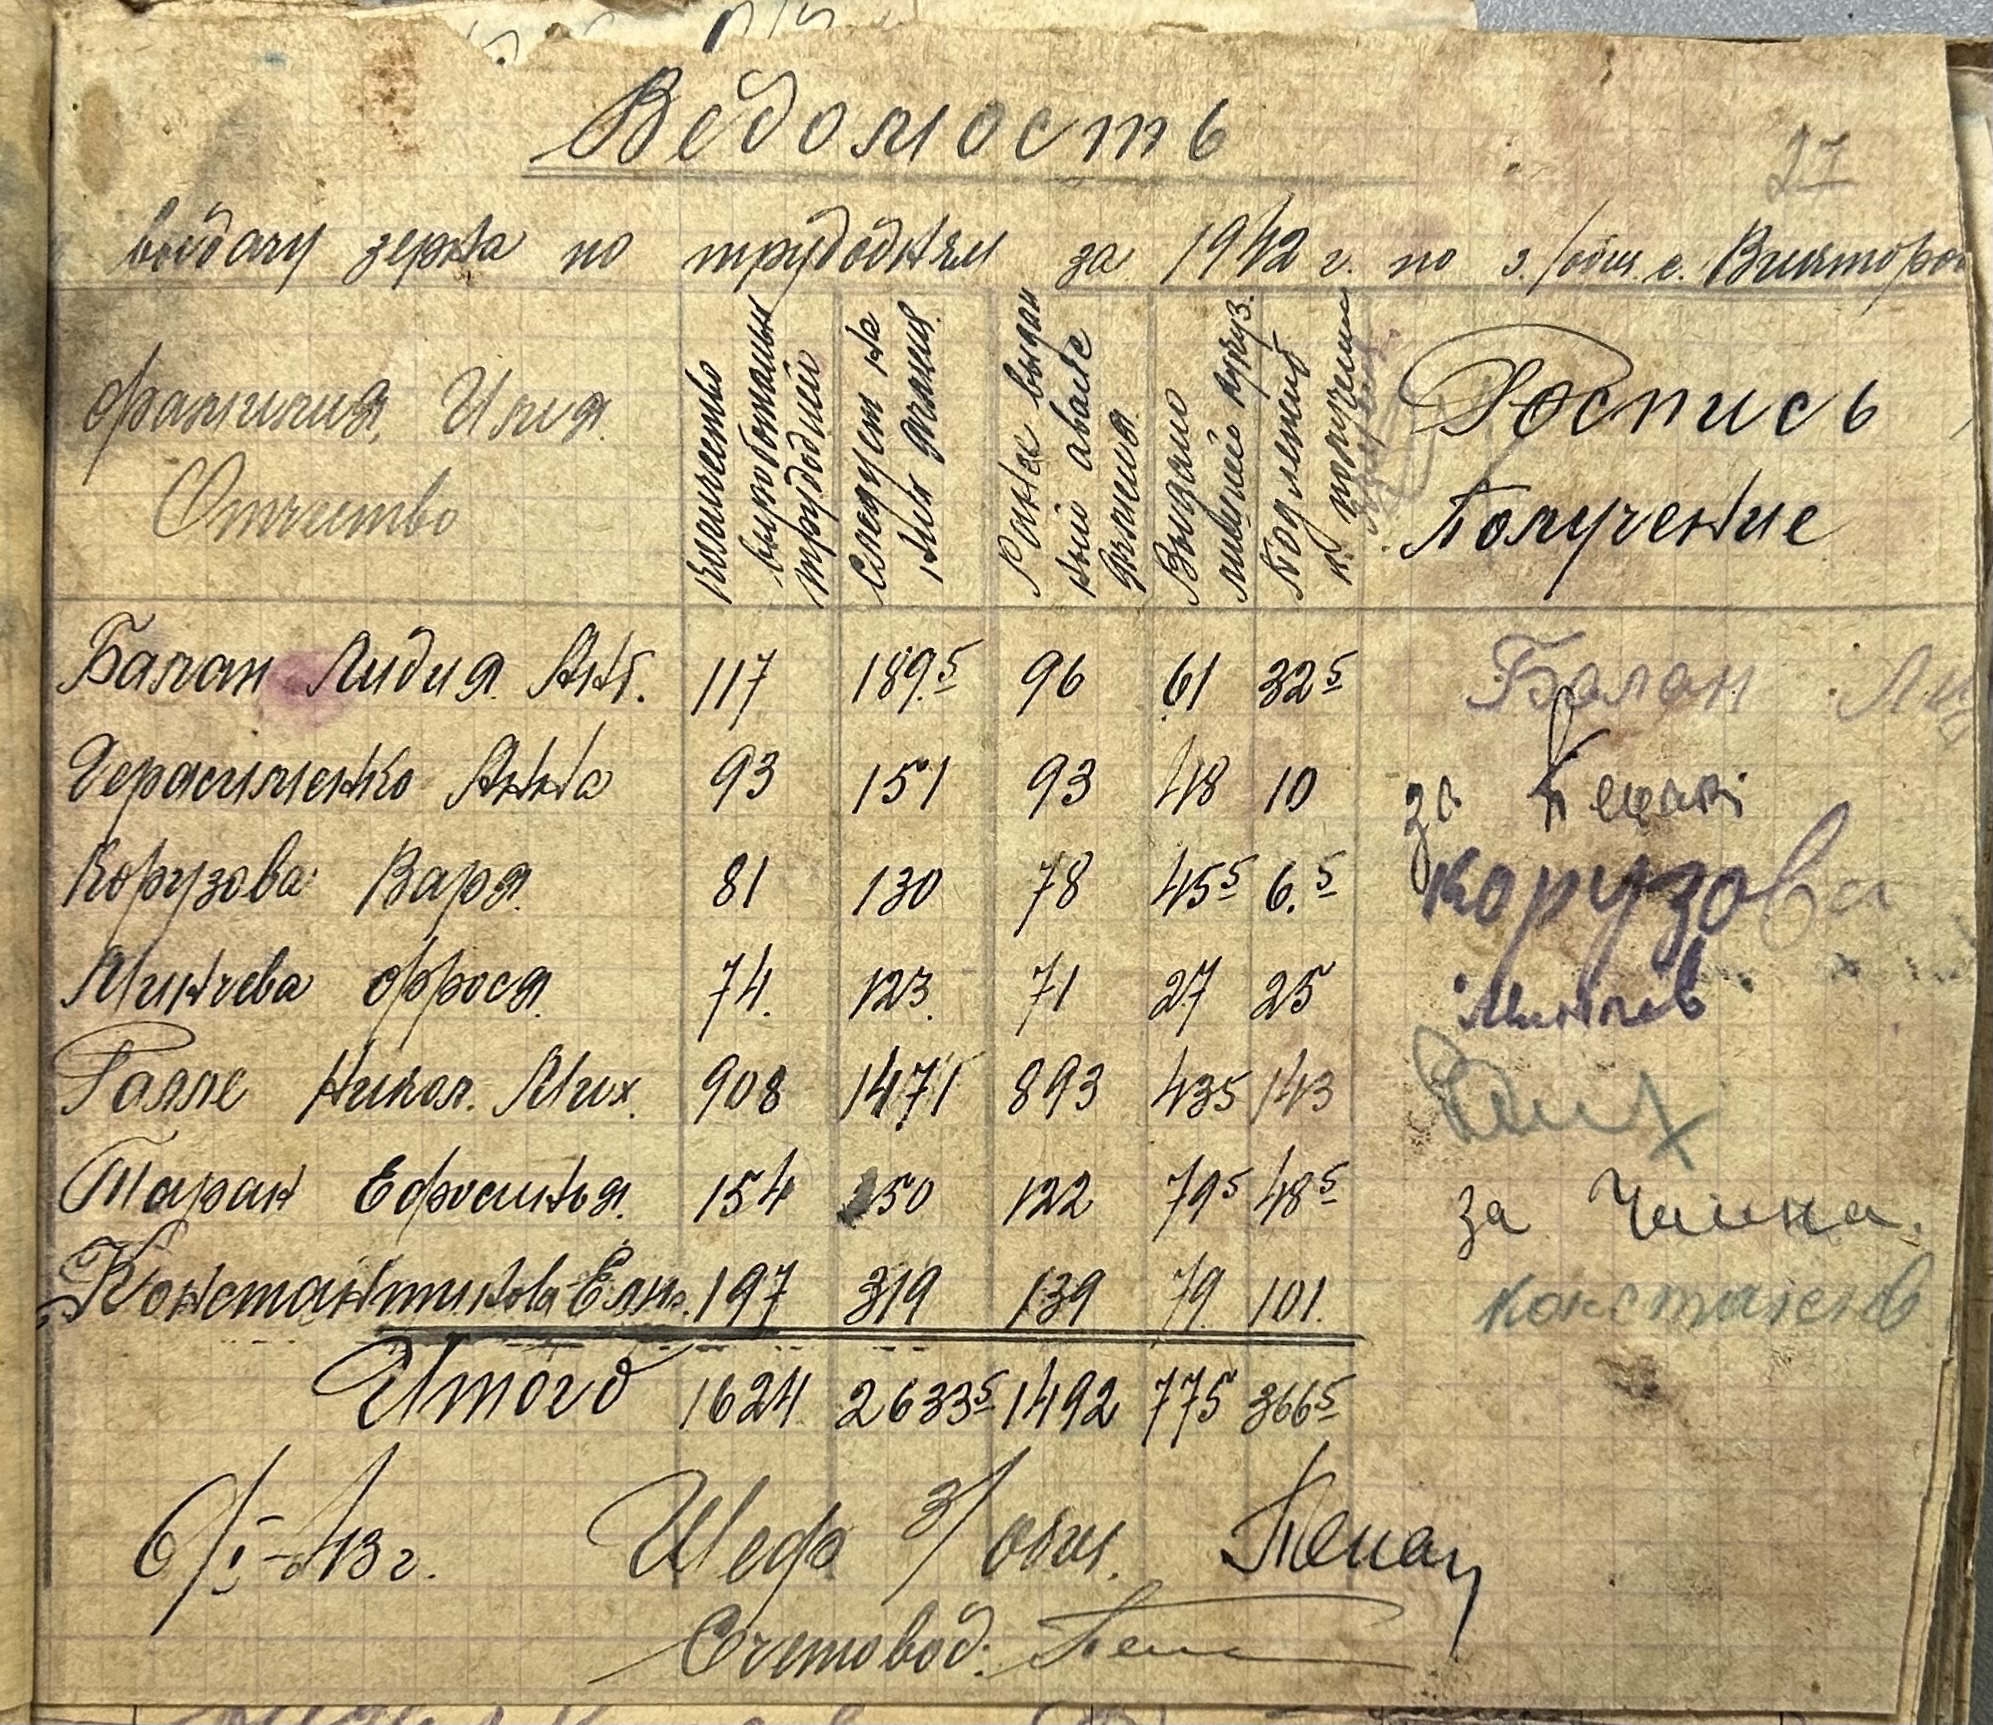 Ведомость
27
выдачу зерна по трудодням за 1942 г. по з./общ. с. Викторов
Фамилия, Имя
Отчество
Количество выработаных трудодней
Следует на них ячменя
Ранее выдан ный аванс ячменя
Выдано ливгуйс кукуруз.
Подлежит к получению
Роспись
Получение
Балан Лидия Ант. 117 189.5 96 61 32 5 Балан Ли
Герасименко Анна 93 151 93 48 10 за
Корузова Варя 81 130 78 45 5 6.5 Корузова
Минчева Фрося 74. 123. 71 27 25 Минчев
Галле Никол. Мих. 908 1471 893 435 143
Таран Ефросинья 154 250 122 79 5 48 5 за Чиина.
Константинова Елн. 197 319 139 79 101. Константинов
Итого 1624 2633 5 1492 775 366 5
6/I-43 г. Шеф з/общ.
Счетовод: